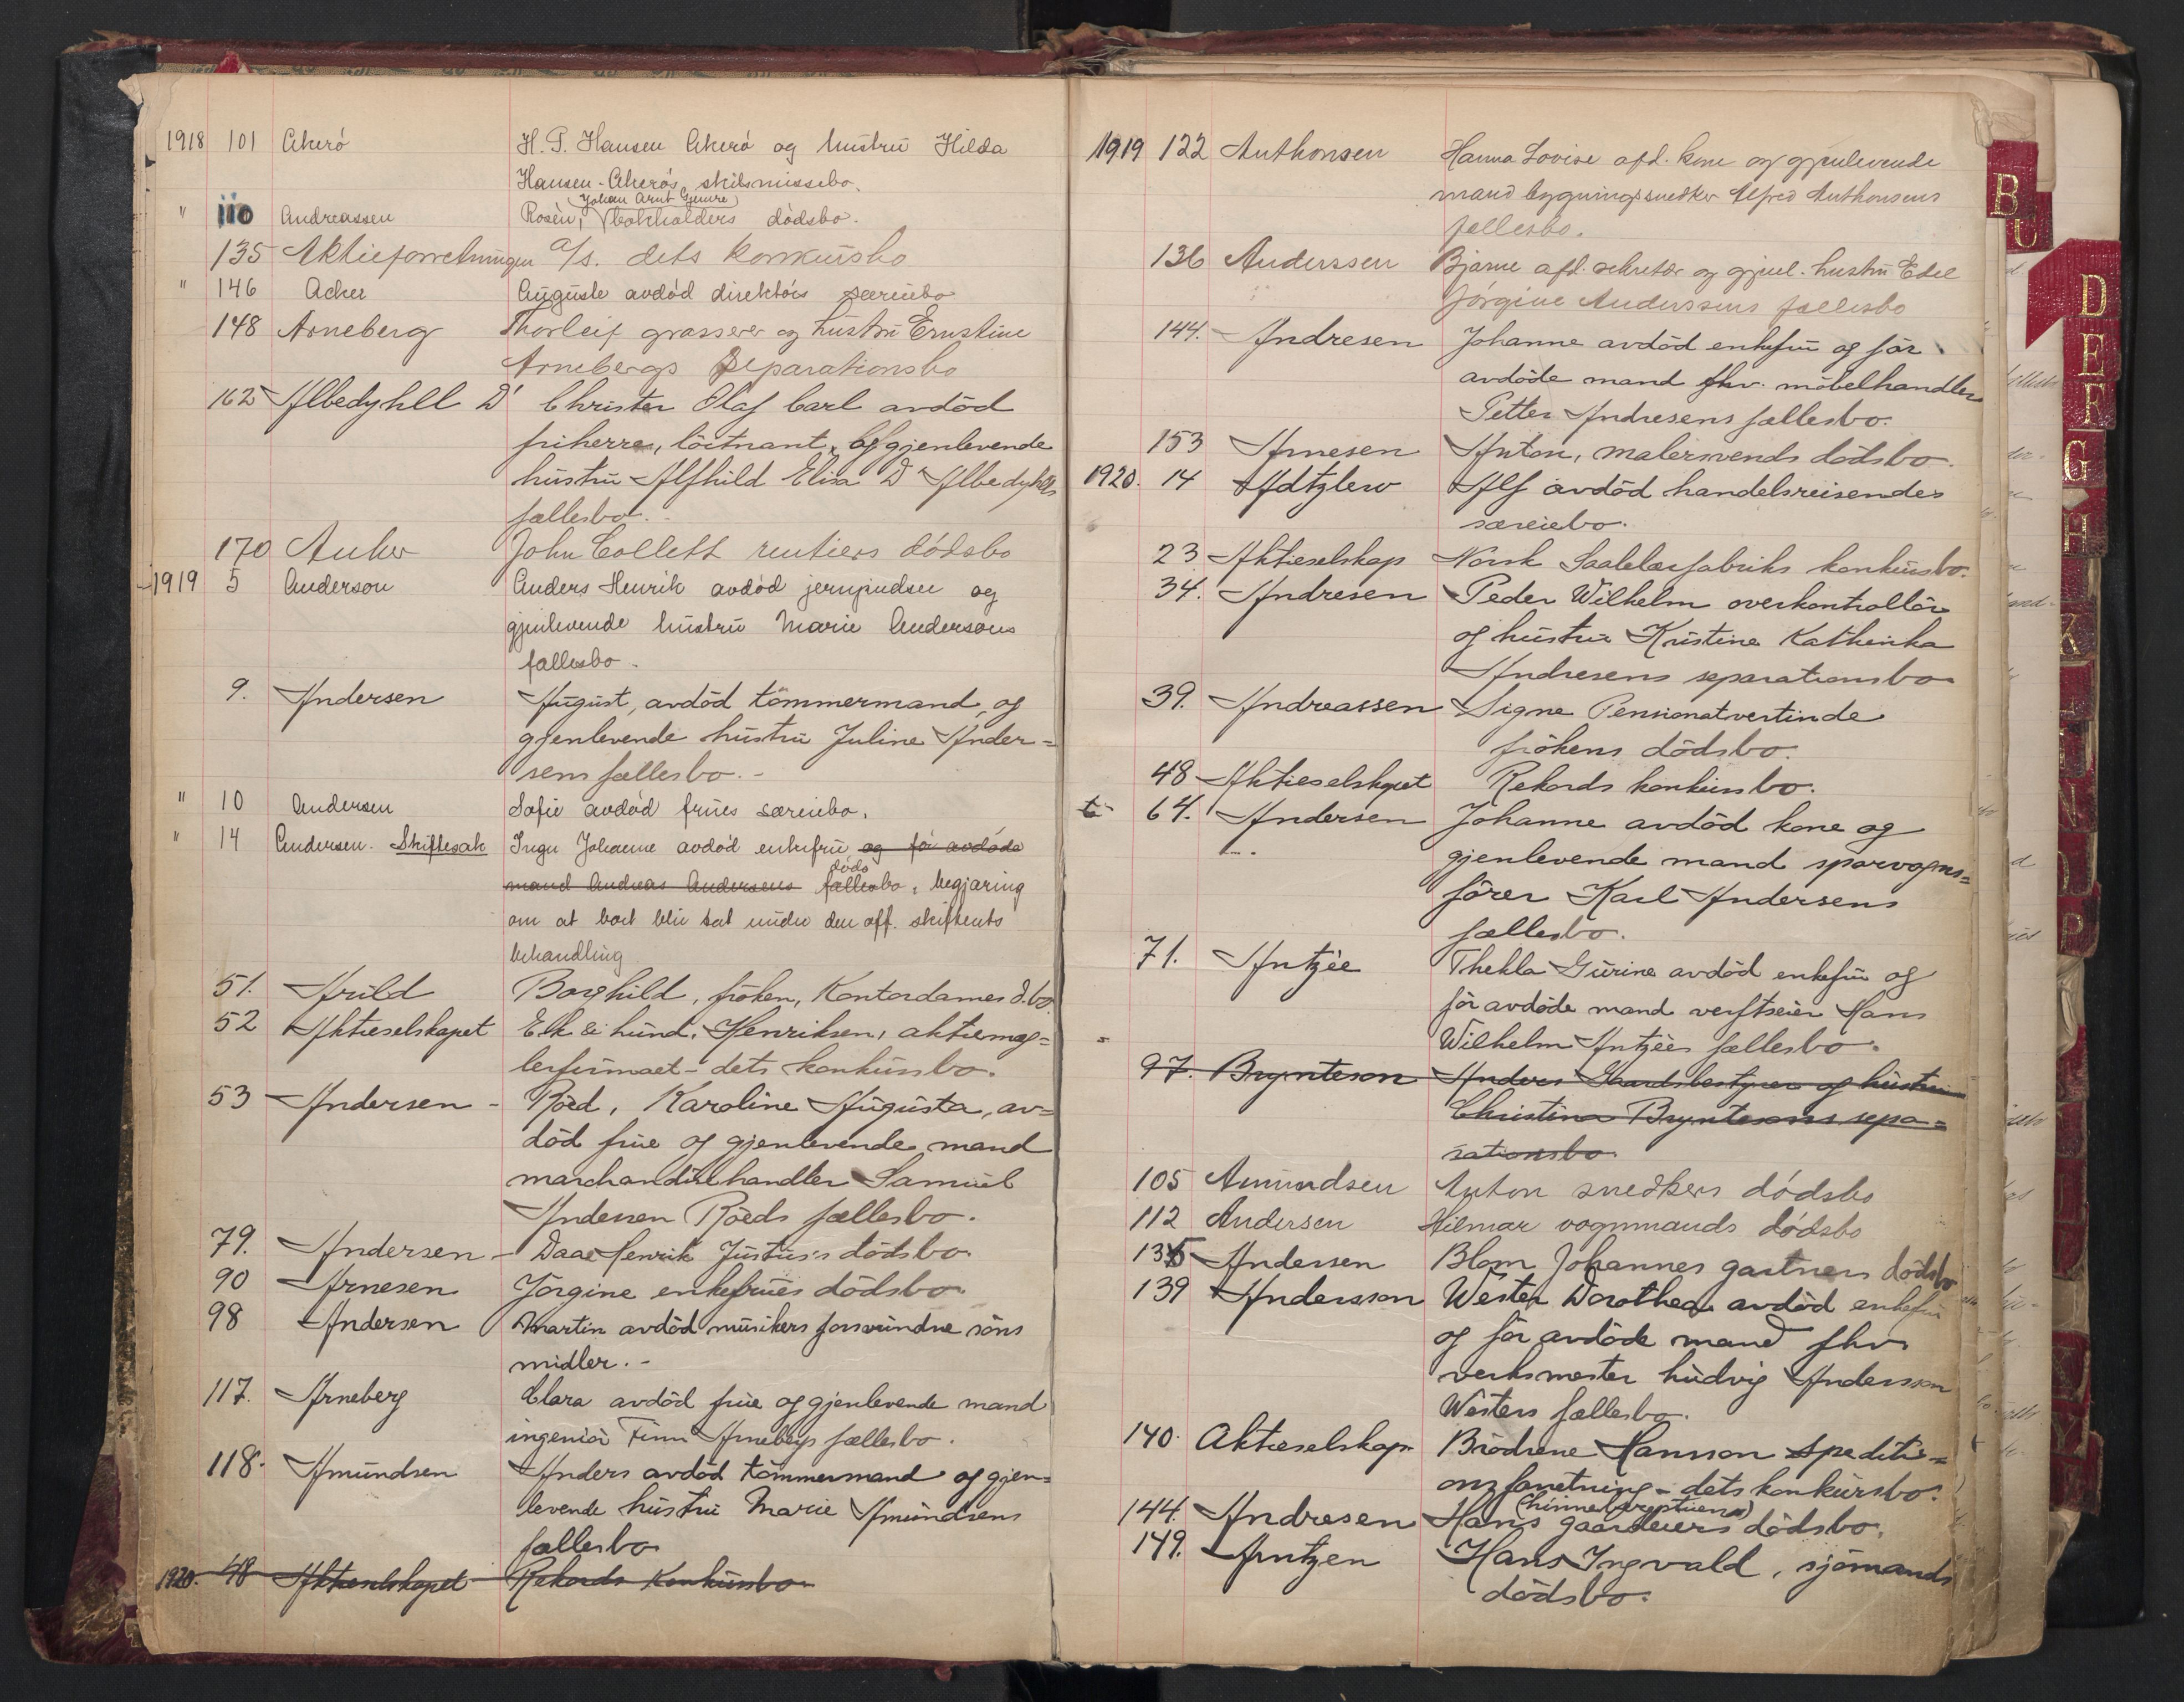 1918 101 Akerö H. P. Hansen Akerö og hustru Hilda
Hansen-Akerös skilsmissebo.
(Johan Arnt Gjemre)
" 110 Andreassen Rosén, bokholders dödsbo.
135 Aktieforretningen a/s. dets konkursbo
" 146 Acker Auguste avdöd direktörs særeiebo
148 Arneberg Thorleif grosserer og hustru Ernstine
Arnebergs separationsbo
162 Albedyhll D' Christer Olaf Carl avdöd
friherre, löitnant, og gjenlevende
hustru Alfhild Elisa D'Albedyhlls
fællesbo.
170 Anker John Collett rentiers dödsbo
1919 5 Anderson Anders Henrik avdöd jernpudser og
gjenlevende hustru Marie Andersons
fællesbo.
9. Andersen August, avdöd tömmermand, og
gjenlevende hustru Juline Ander=
sens fællesbo.-
" 10 Andersen Sofie avdöd frues særeiebo.
" 14 Andersen. Skiftesak Inga Johanne avdöd enkefru og för avdöde
döds
mand Andreas Andersens fællesbo, begjæring
om at boet blir tat under den off. skifterets
behandling
51. Arild Borghild, fröken, Kontordames d.bo.
52 Aktieselskapet E.k. & hund. Henriksen, aktiemæg=
lerfirmaet - dets konkursbo.
53 Andersen - Röed, Karoline Augusta, av=
död frue og gjenlevende mand
marchandisehandler Samuel
Andersen Röeds fællesbo.
79. Andersen - Daae Henrik Justus's dödsbo.
90 Arnesen Jörgine enkefrues dödsbo.
98 Andersen Martin avdöd musikers forsvundne söns
midler.-
117. Arneberg Clara avdöd frue og gjenlevende mand
ingeniör Finn Arnebergs fællesbo.
118. Amundsen Anders avdöd tömmermand og gjen=
levende hustru Marie Amundsens
fællesbo
1920. 48 Aktieselskapet Rekords Konkursbo
1919 122 Anthonsen Hanna Lovise afd. kone og gjenlevende
mand bygningssnedker Alfred Anthonsens
fellesbo.
136 Anderssen Bjarne afd. sekretær og gjenl. hustru Edel
Jörgine Anderssens fællesbo
144. Andresen Johanne avdöd enkefru og för
avdöde mand fhv. möbelhandler
Petter Andresens fællesbo.
153 Arnesen Anton, malersvends dödsbo.
1920. 14 Adtzlew Alf avdöd handelsreisendes
særeiebo.
23 Aktieselskap Norsk Saalelærfabriks konkursbo.
34. Andresen Peder Wilhelm overkontrollör
og hustru Kristine Kathinka
Andresens separationsbo
39. Andreassen Signe Pensionatvertinde
frökens dödsbo.
48 Aktieselskapet Rekords konkursbo.
64. Andersen Johanne avdöd kone og
gjenlevende mand sporvogns=
förer Karl Andersens
fællesbo.
71. Antzée Thekla Gurine avdöd enkefru og
för avdöde mand verftseier Hans
Wilhelm Antzées fællesbo.
97. Brynteson Anders Gaardsbestyrer og hustru
Christina Bryntesons sepa=
rationsbo.
105 Amundsen Anton snedkers dödsbo
112 Andersen Hilmar vognmands dödsbo
135 Andersen Blom Johannes gartners dödsbo
139 Andersson Wester Dorothea avdöd enkefru
og för avdöde mand fhv.
verksmester Ludvig Andersson
Westers fællesbo.
140. Aktieselskap. Brödrene Hansson Spediti=
onsforretning - dets konkursbo.
144. Andresen Hans gaardeiers dödsbo.
149. Arntzen Hans Ingvald, sjömands
dödsbo.
B
U
D
E
F
G
H
K
L
N
P